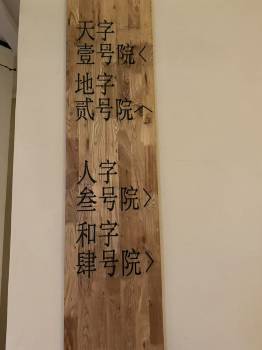 天字
壹号院<
地字
贰号院へ
人字
叁号院>
和字
肆号院>